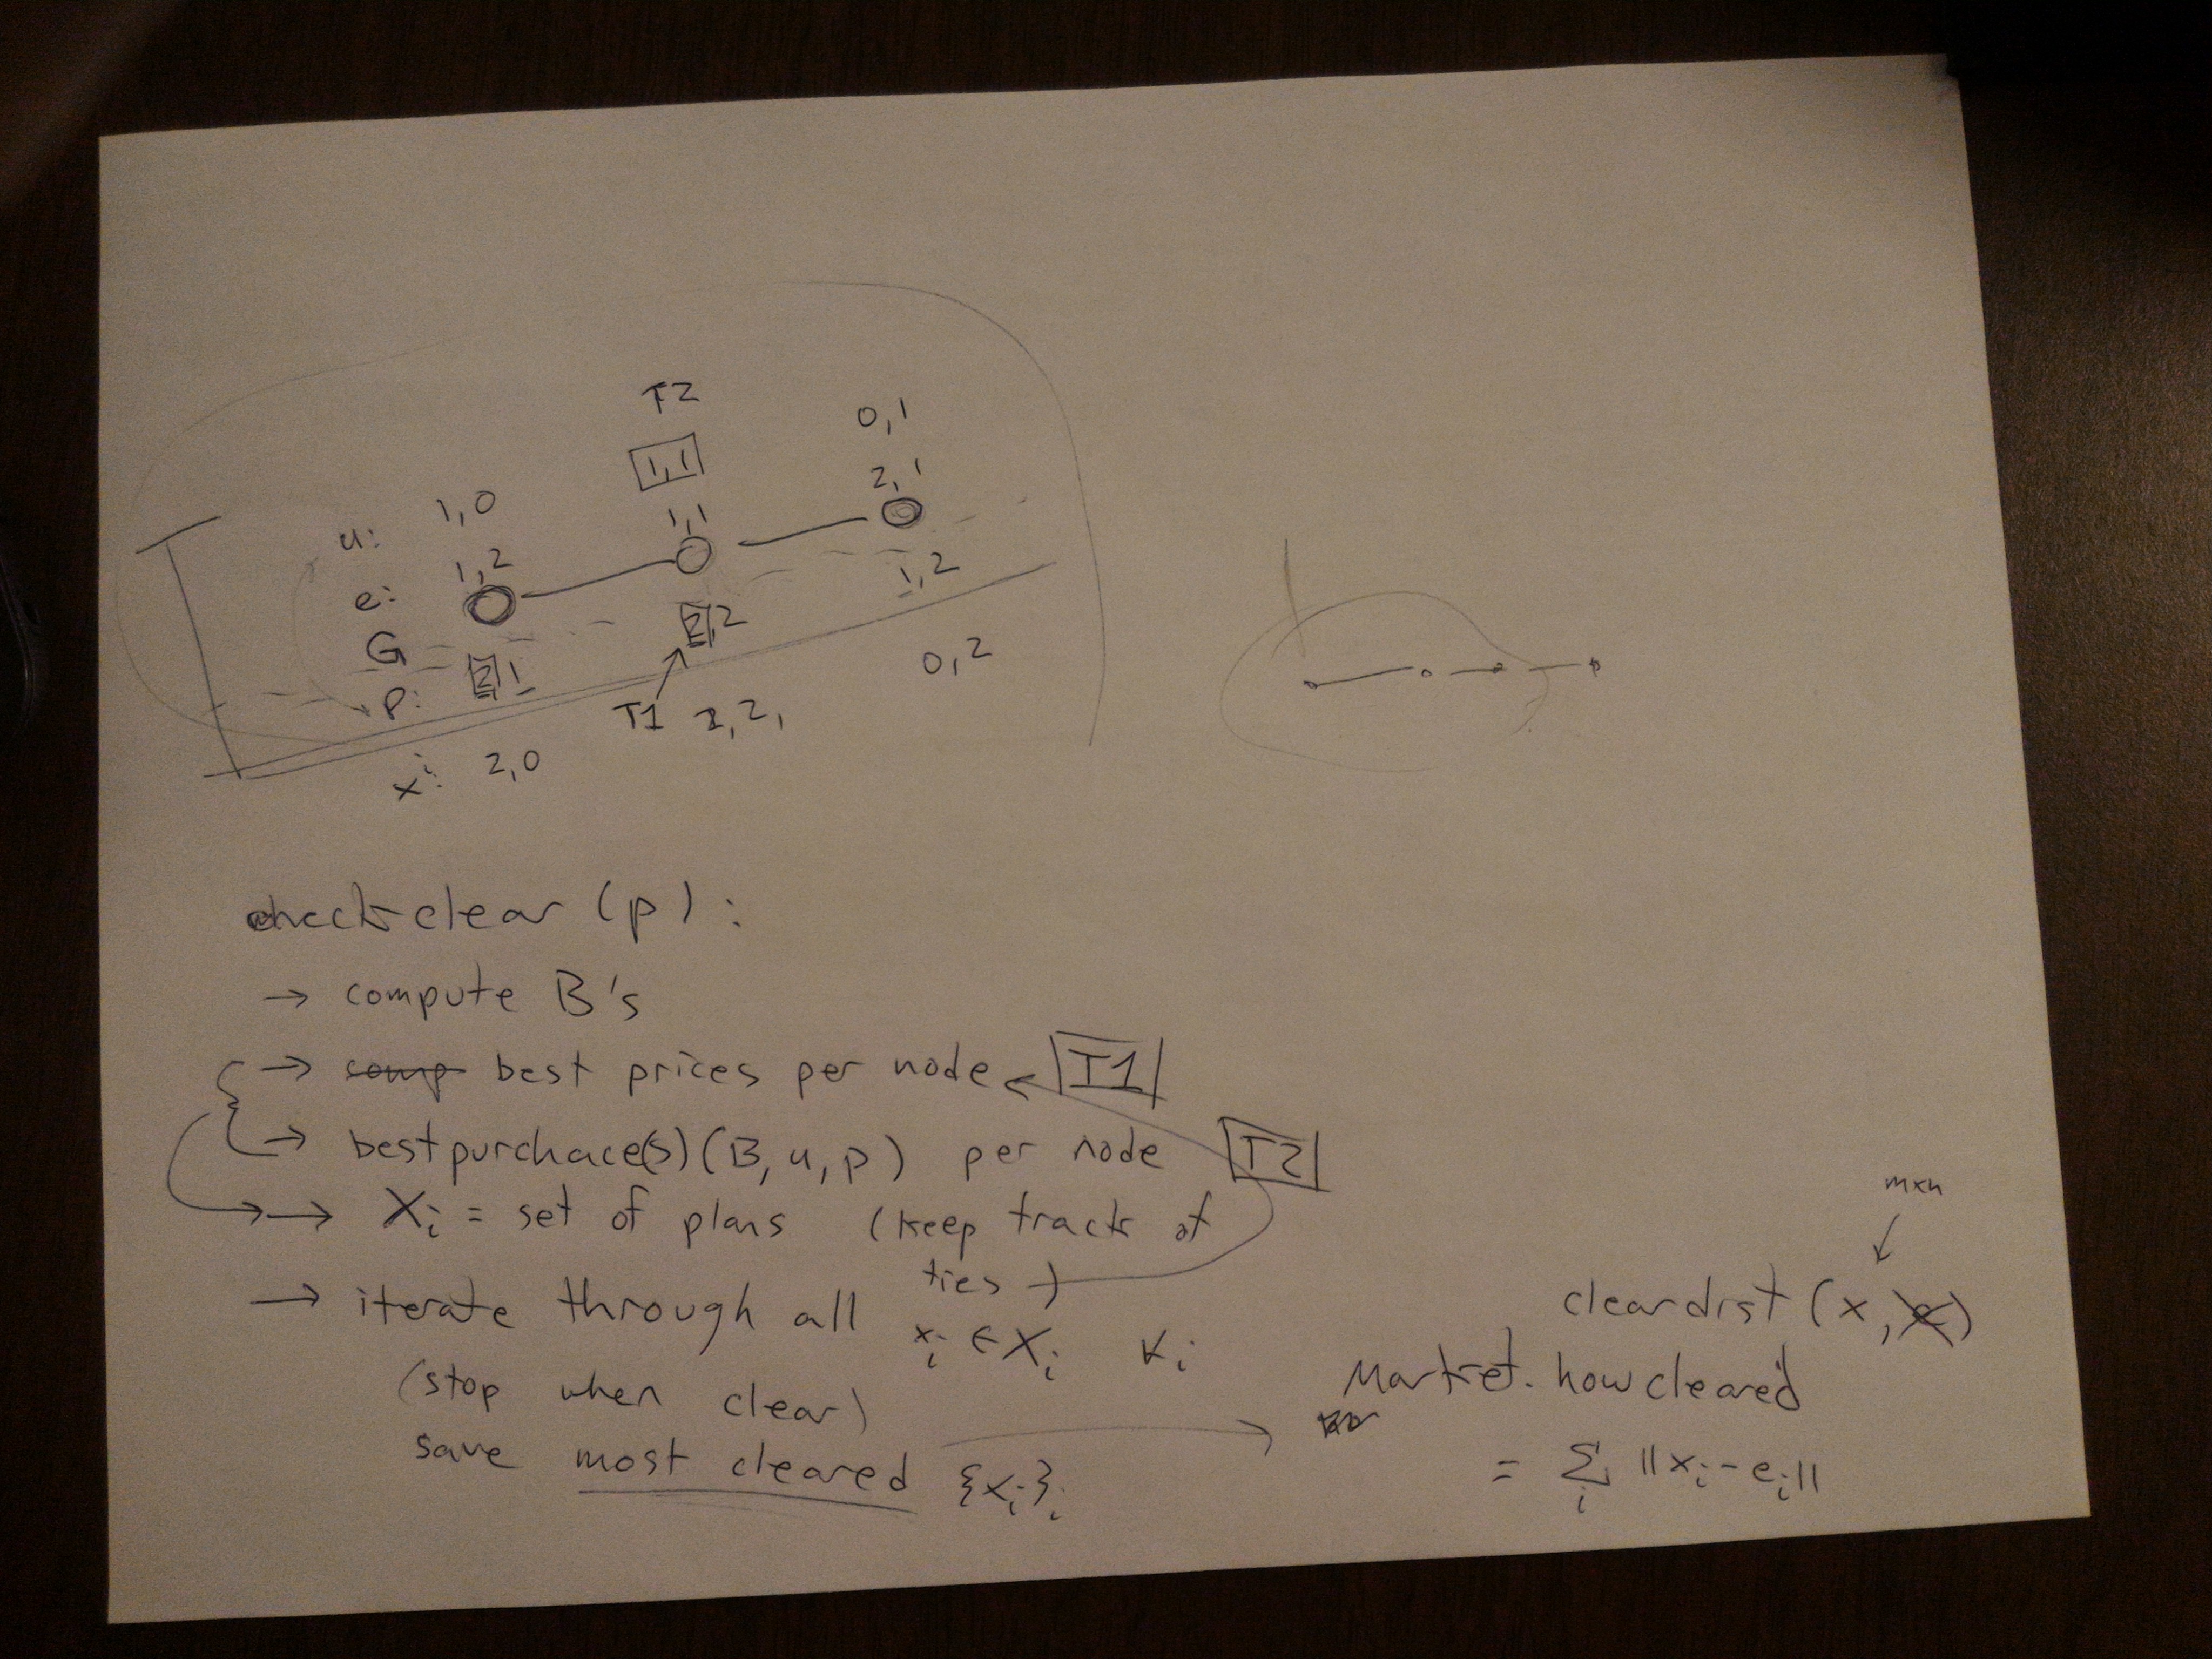 T2
1,1
0,1
u: 1,0
1,1
2,1
e: 1,2
G
p: 2,1
2,2
1,2
T1
x^i: 2,0
2,2,
0,2
check clear (p) :
→ compute B's
→ comp best prices per node ← T1
→ best purchace(s) (B, u, p) per node T2
→ X_i = set of plans (keep track of
ties)
→ iterate through all x_i ∈ X_i ∀i
(stop when clear)
save most cleared {x_i}_i
mxn
cleardist (x, e)
Market. how cleared
= Σ_i ||x_i - e_i||